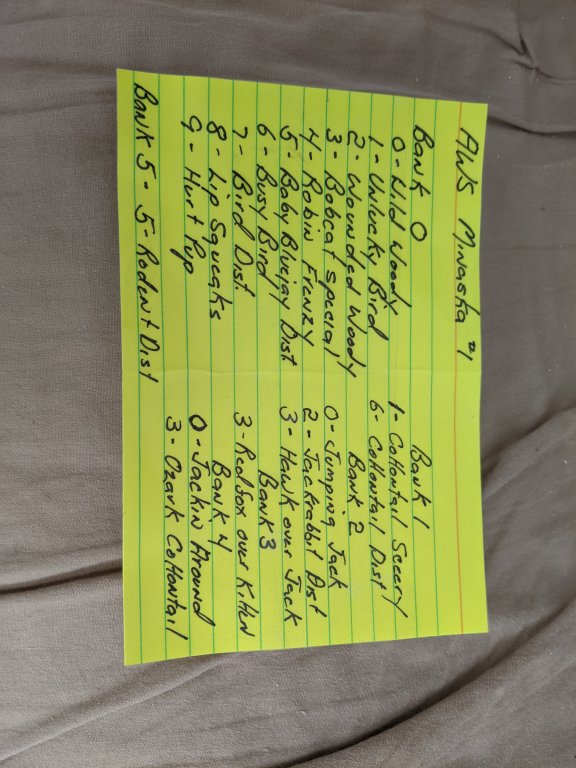 AWS Minaska #1
Bank 0
0 - Wild Woody
1 - Unlucky Bird
2 - Wounded Woody
3 - Bobcat special
4 - Robin Frenzy
5 - Baby Bluejay Dist
6 - Busy Bird
7 - Bird Dist.
8 - Lip Squeaks
9 - Hurt Pup
Bank 1
1 - Cottontail Sccery
6 - Cottontail Dist
Bank 2
0 - Jumping Jack
2 - Jackrabbit Dist
3 - Hawk over Jack
Bank 3
3 - Redfox over Kitten
Bank 4
0 - Jackin Around
3 - Ozark Cottontail
Bank 5 - 5 - Rodent Dist